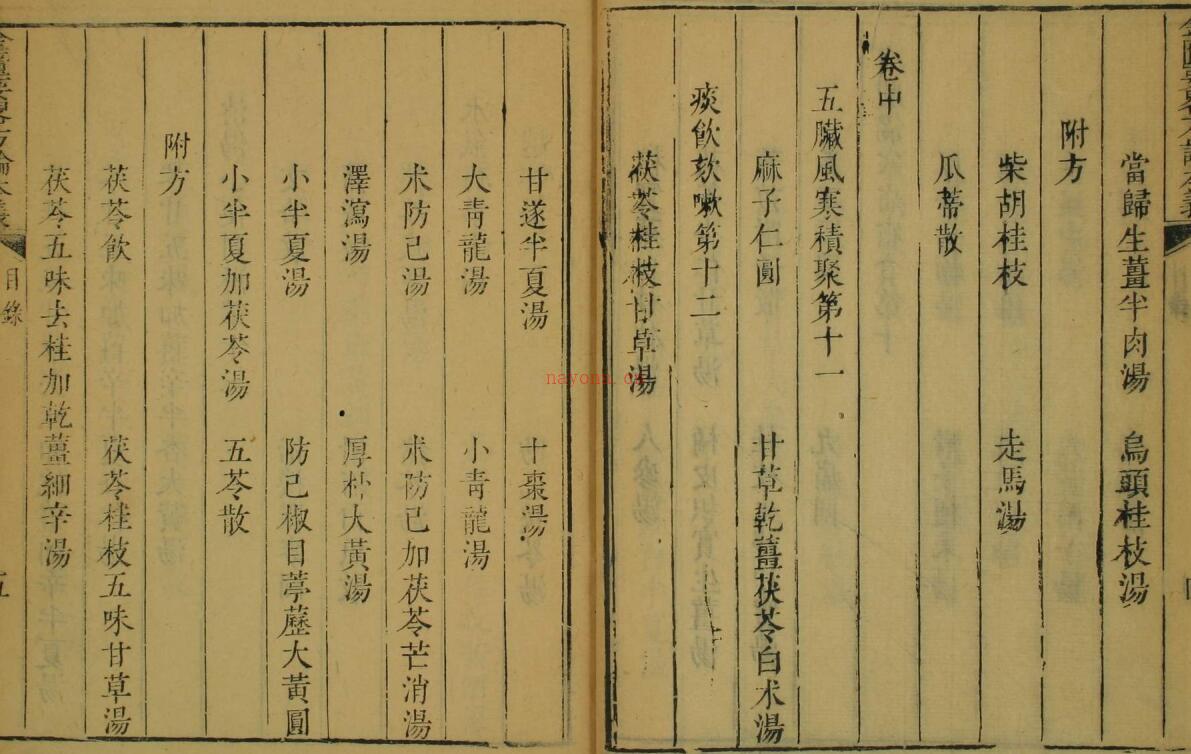 當歸生薑半肉湯　烏頭桂枝湯
附方
柴胡桂枝　走馬湯
瓜蒂散
卷中
五臟風寒積聚第十一
麻子仁圓　甘草乾薑茯苓白朮湯
痰飲欬嗽第十二
茯苓桂枝甘草湯
甘遂半夏湯　十棗湯
大青龍湯　小青龍湯
木防己湯　木防己加茯苓芒消湯
澤瀉湯　厚朴大黃湯
小半夏湯　防己椒目葶藶大黃圓
小半夏加茯苓湯　五苓散
附方
茯苓飲　茯苓桂枝五味甘草湯
茯苓五味去桂加乾薑細辛湯
目錄　五